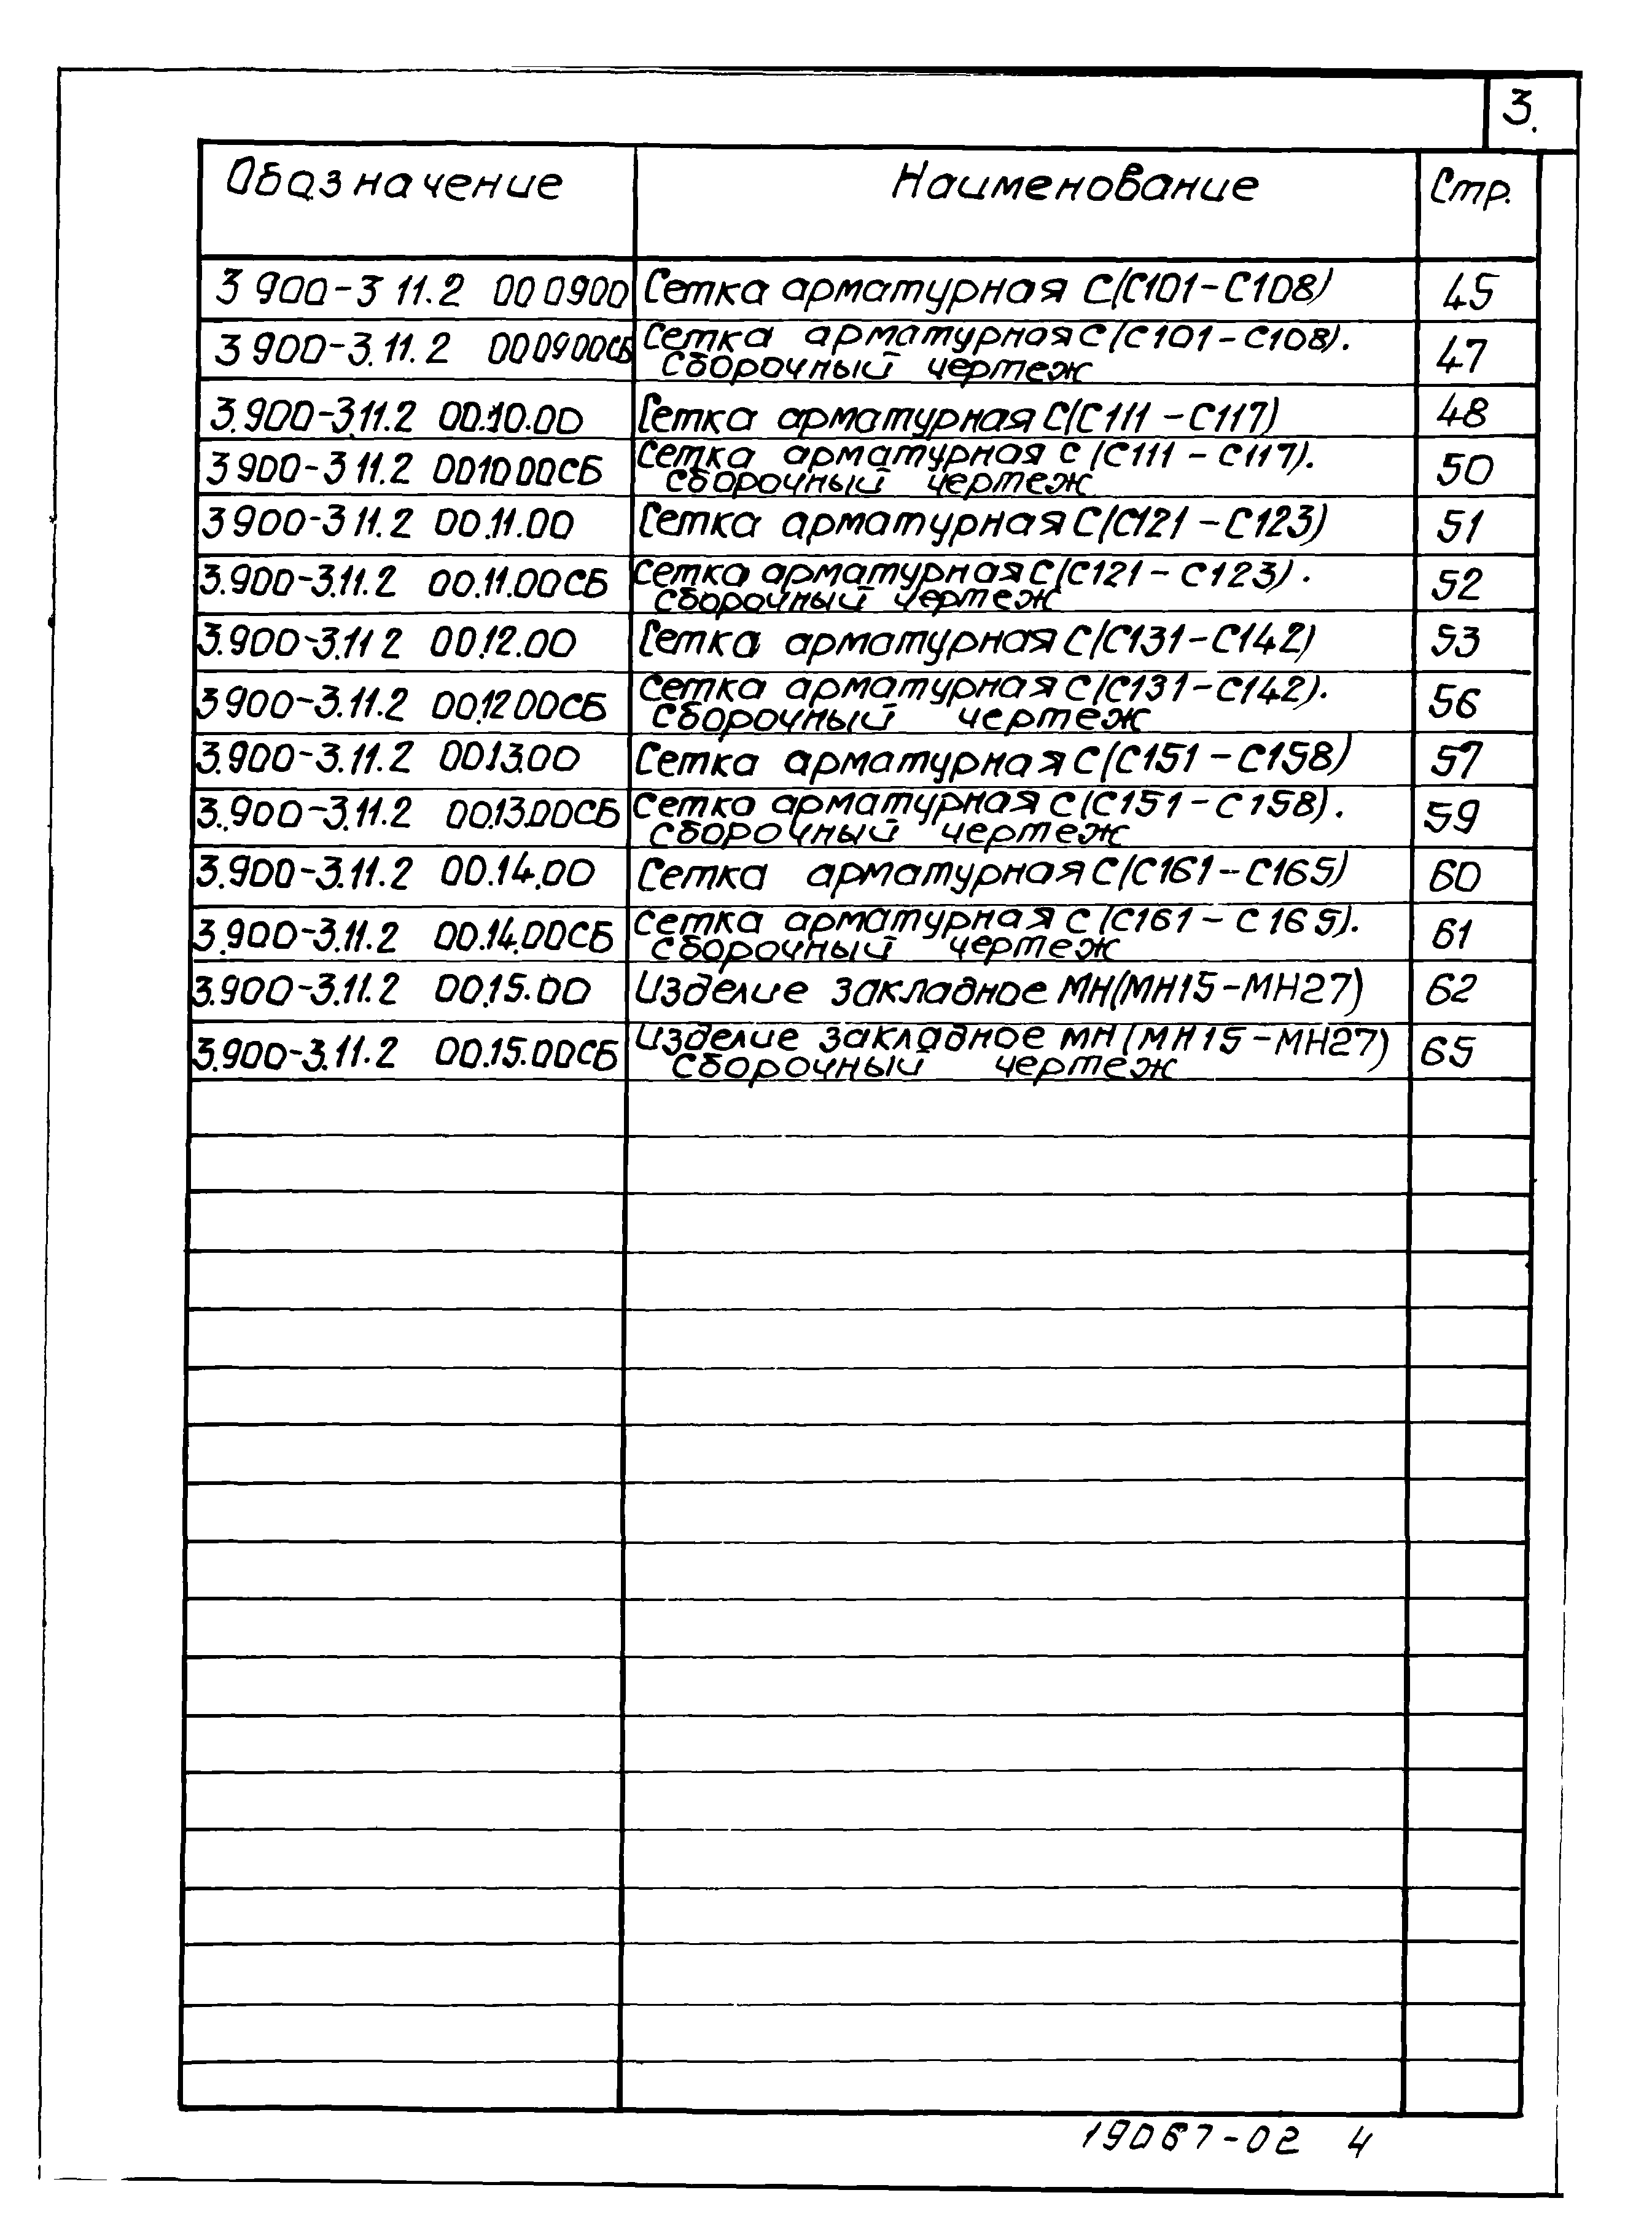 3.
Обозначение Наименование Стр.
3 900-3 11.2 00 0900 Сетка арматурная С(С101-С108) 45
3 900-3.11.2 00 09 00СБ Сетка арматурная С(С101-С108). 47
Сборочный чертеж
3.900-3.11.2 00.10.00 Сетка арматурная С(С111-С117) 48
3 900-3 11.2 00 10 00СБ Сетка арматурная С(С111-С117). 50
Сборочный чертеж
3 900-3 11.2 00.11.00 Сетка арматурная С(С121-С123) 51
3.900-3.11.2 00.11.00СБ Сетка арматурная С(С121-С123). 52
Сборочный чертеж
3.900-3.11 2 00.12.00 Сетка арматурная С(С131-С142) 53
3 900-3.11.2 00.12 00СБ Сетка арматурная С(С131-С142). 56
Сборочный чертеж
3.900-3.11.2 00.13.00 Сетка арматурная С(С151-С158) 57
3.900-3.11.2 00.13.00СБ Сетка арматурная С(С151-С158). 59
Сборочный чертеж
3.900-3.11.2 00.14.00 Сетка арматурная С(С161-С165) 60
3.900-3.11.2 00.14.00СБ Сетка арматурная С(С161-С165). 61
Сборочный чертеж
3.900-3.11.2 00.15.00 Изделие закладное МН(МН15-МН27) 62
3.900-3.11.2 00.15.00СБ Изделие закладное МН(МН15-МН27) 65
Сборочный чертеж
19067-02 4